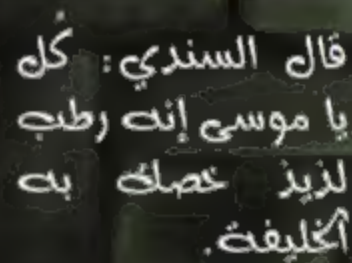 قال السندي: كُل
يا موسى إنه رطب
لذيذ خصك به
الخليفة.